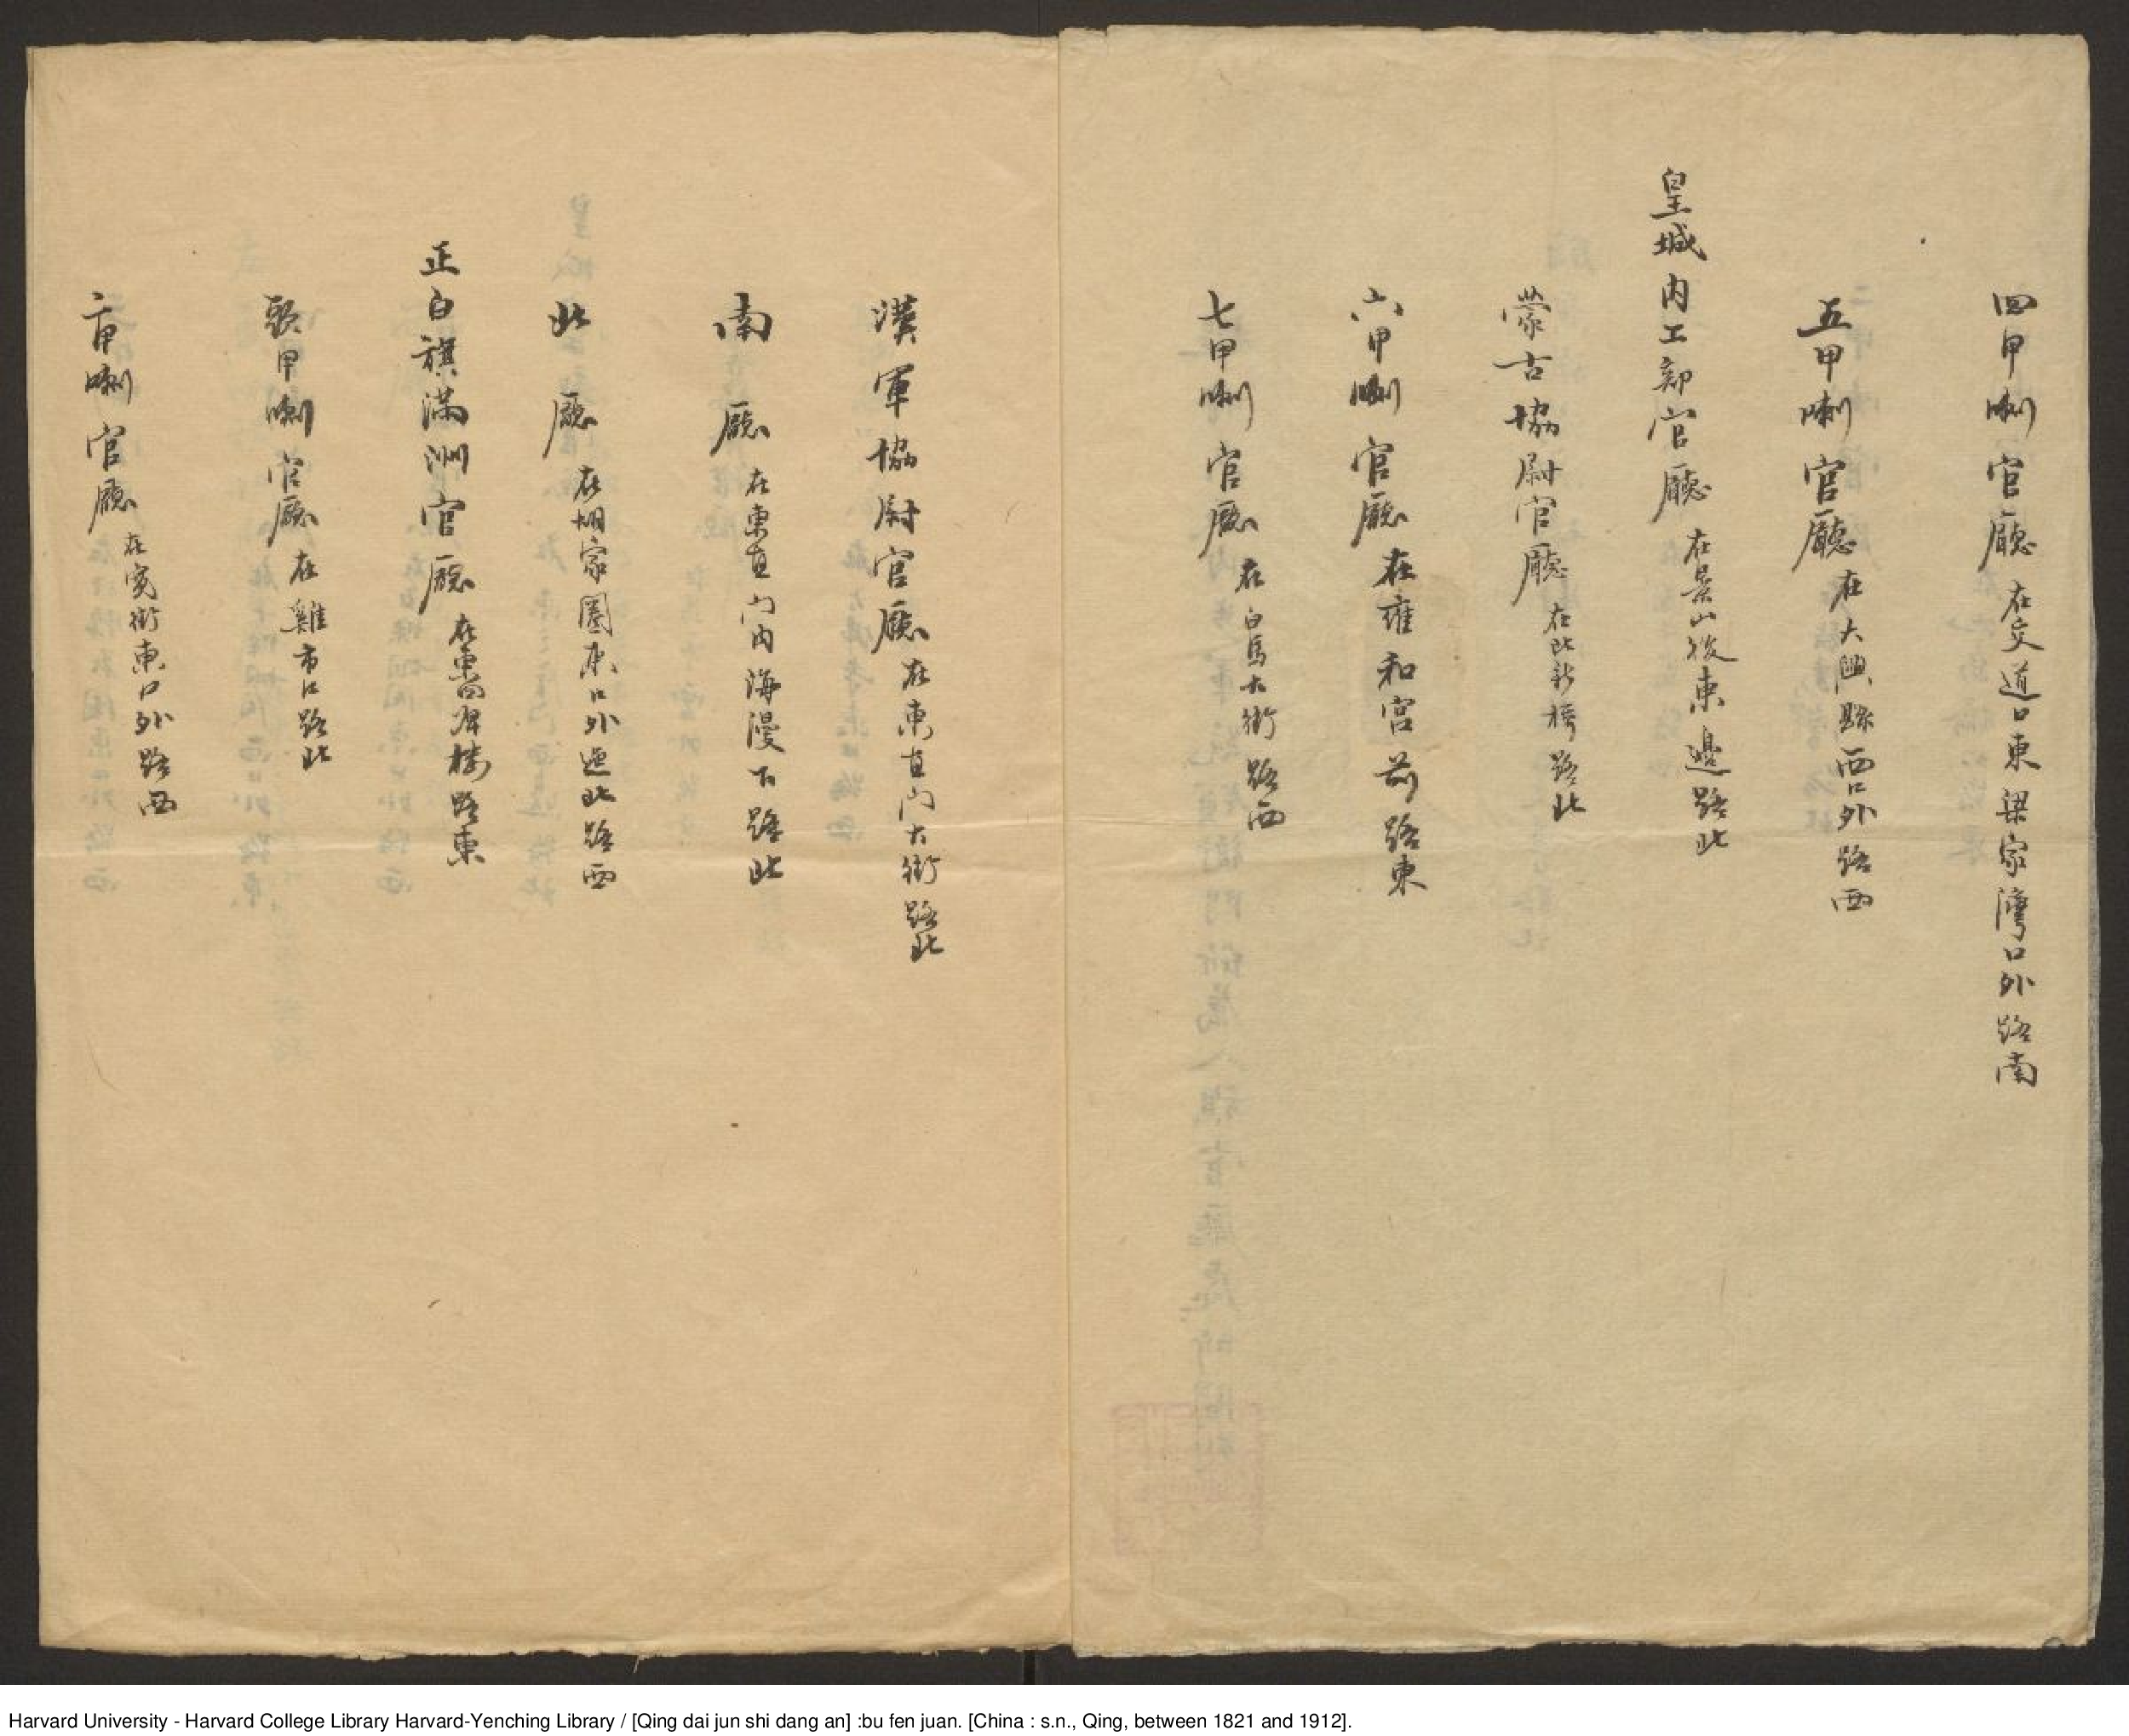 四甲喇官廳 在交道口東梁家灣口外路南
五甲喇官廳 在大興縣西口外路西
皇城内工部官廳 在景山後東邊路北
蒙古協尉官廳 在北新橋路北
六甲喇官廳 在雍和宮前路東
七甲喇官廳 在白馬大街路西
漢軍協尉官廳 在東直门大街路北
南廳 在東直门内海漫下路北
北廳 在胡家圈東口外迤北路西
正白旗滿洲官廳 在東四牌樓路東
頭甲喇官廳 在雞市口路北
二甲喇官廳 在寬街東口外路西
Harvard University - Harvard College Library Harvard-Yenching Library / [Qing dai jun shi dang an] :bu fen juan. [China : s.n., Qing, between 1821 and 1912].